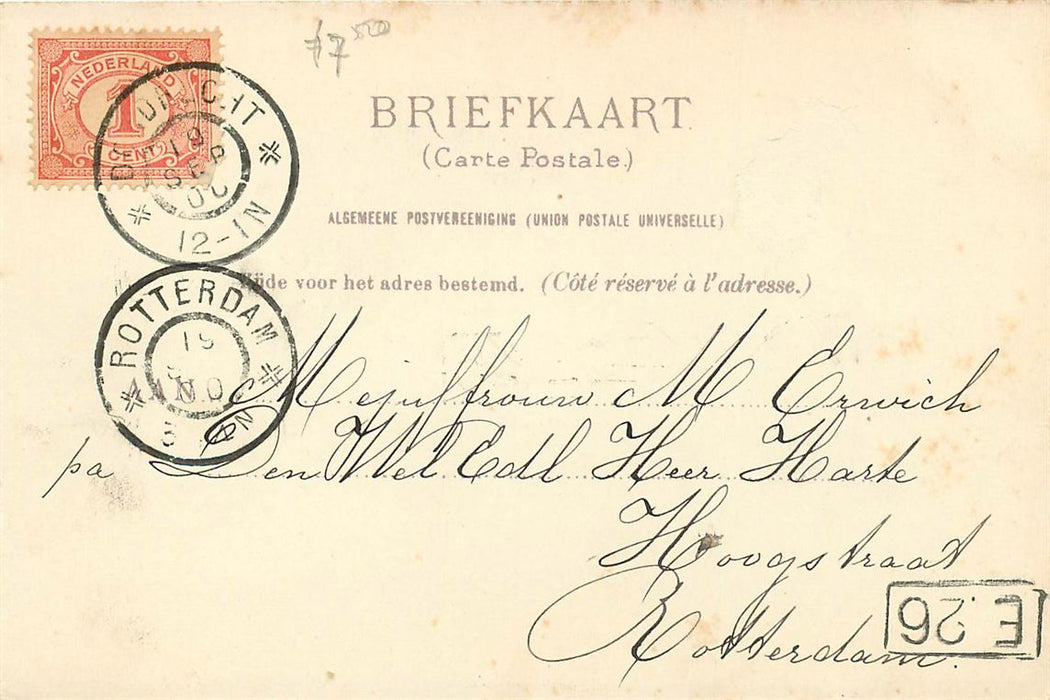 NEDERLAND
1
CENT
DORDRECHT
19
SEP
00
12-1N
ROTTERDAM
19
BRIEFKAART
(Carte Postale.)
ALGEMEENE POSTVEREENIGING (UNION POSTALE UNIVERSELLE)
Zijde voor het adres bestemd. (Côté réservé à l'adresse.)
Mejuffrouw M Erwich
pa Den Wel Edl Heer Harte
Hoogstraat
Rotterdam.
E.26